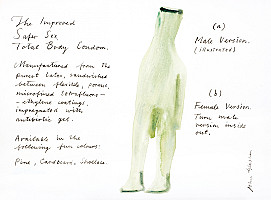 The Improved
Safer Sex
Total Body Condom.
Manufactured from the
finest latex, sandwiched
between flexible, porous,
microfined tetrafluoro-
- ethylene coatings,
impregnated with
antibiotic gel.
Available in the
following fun colours:
Pine, Cardboard,
(a)
Male Version.
(illustrated)
(b)
Female Version.
Turn male
version inside
out.